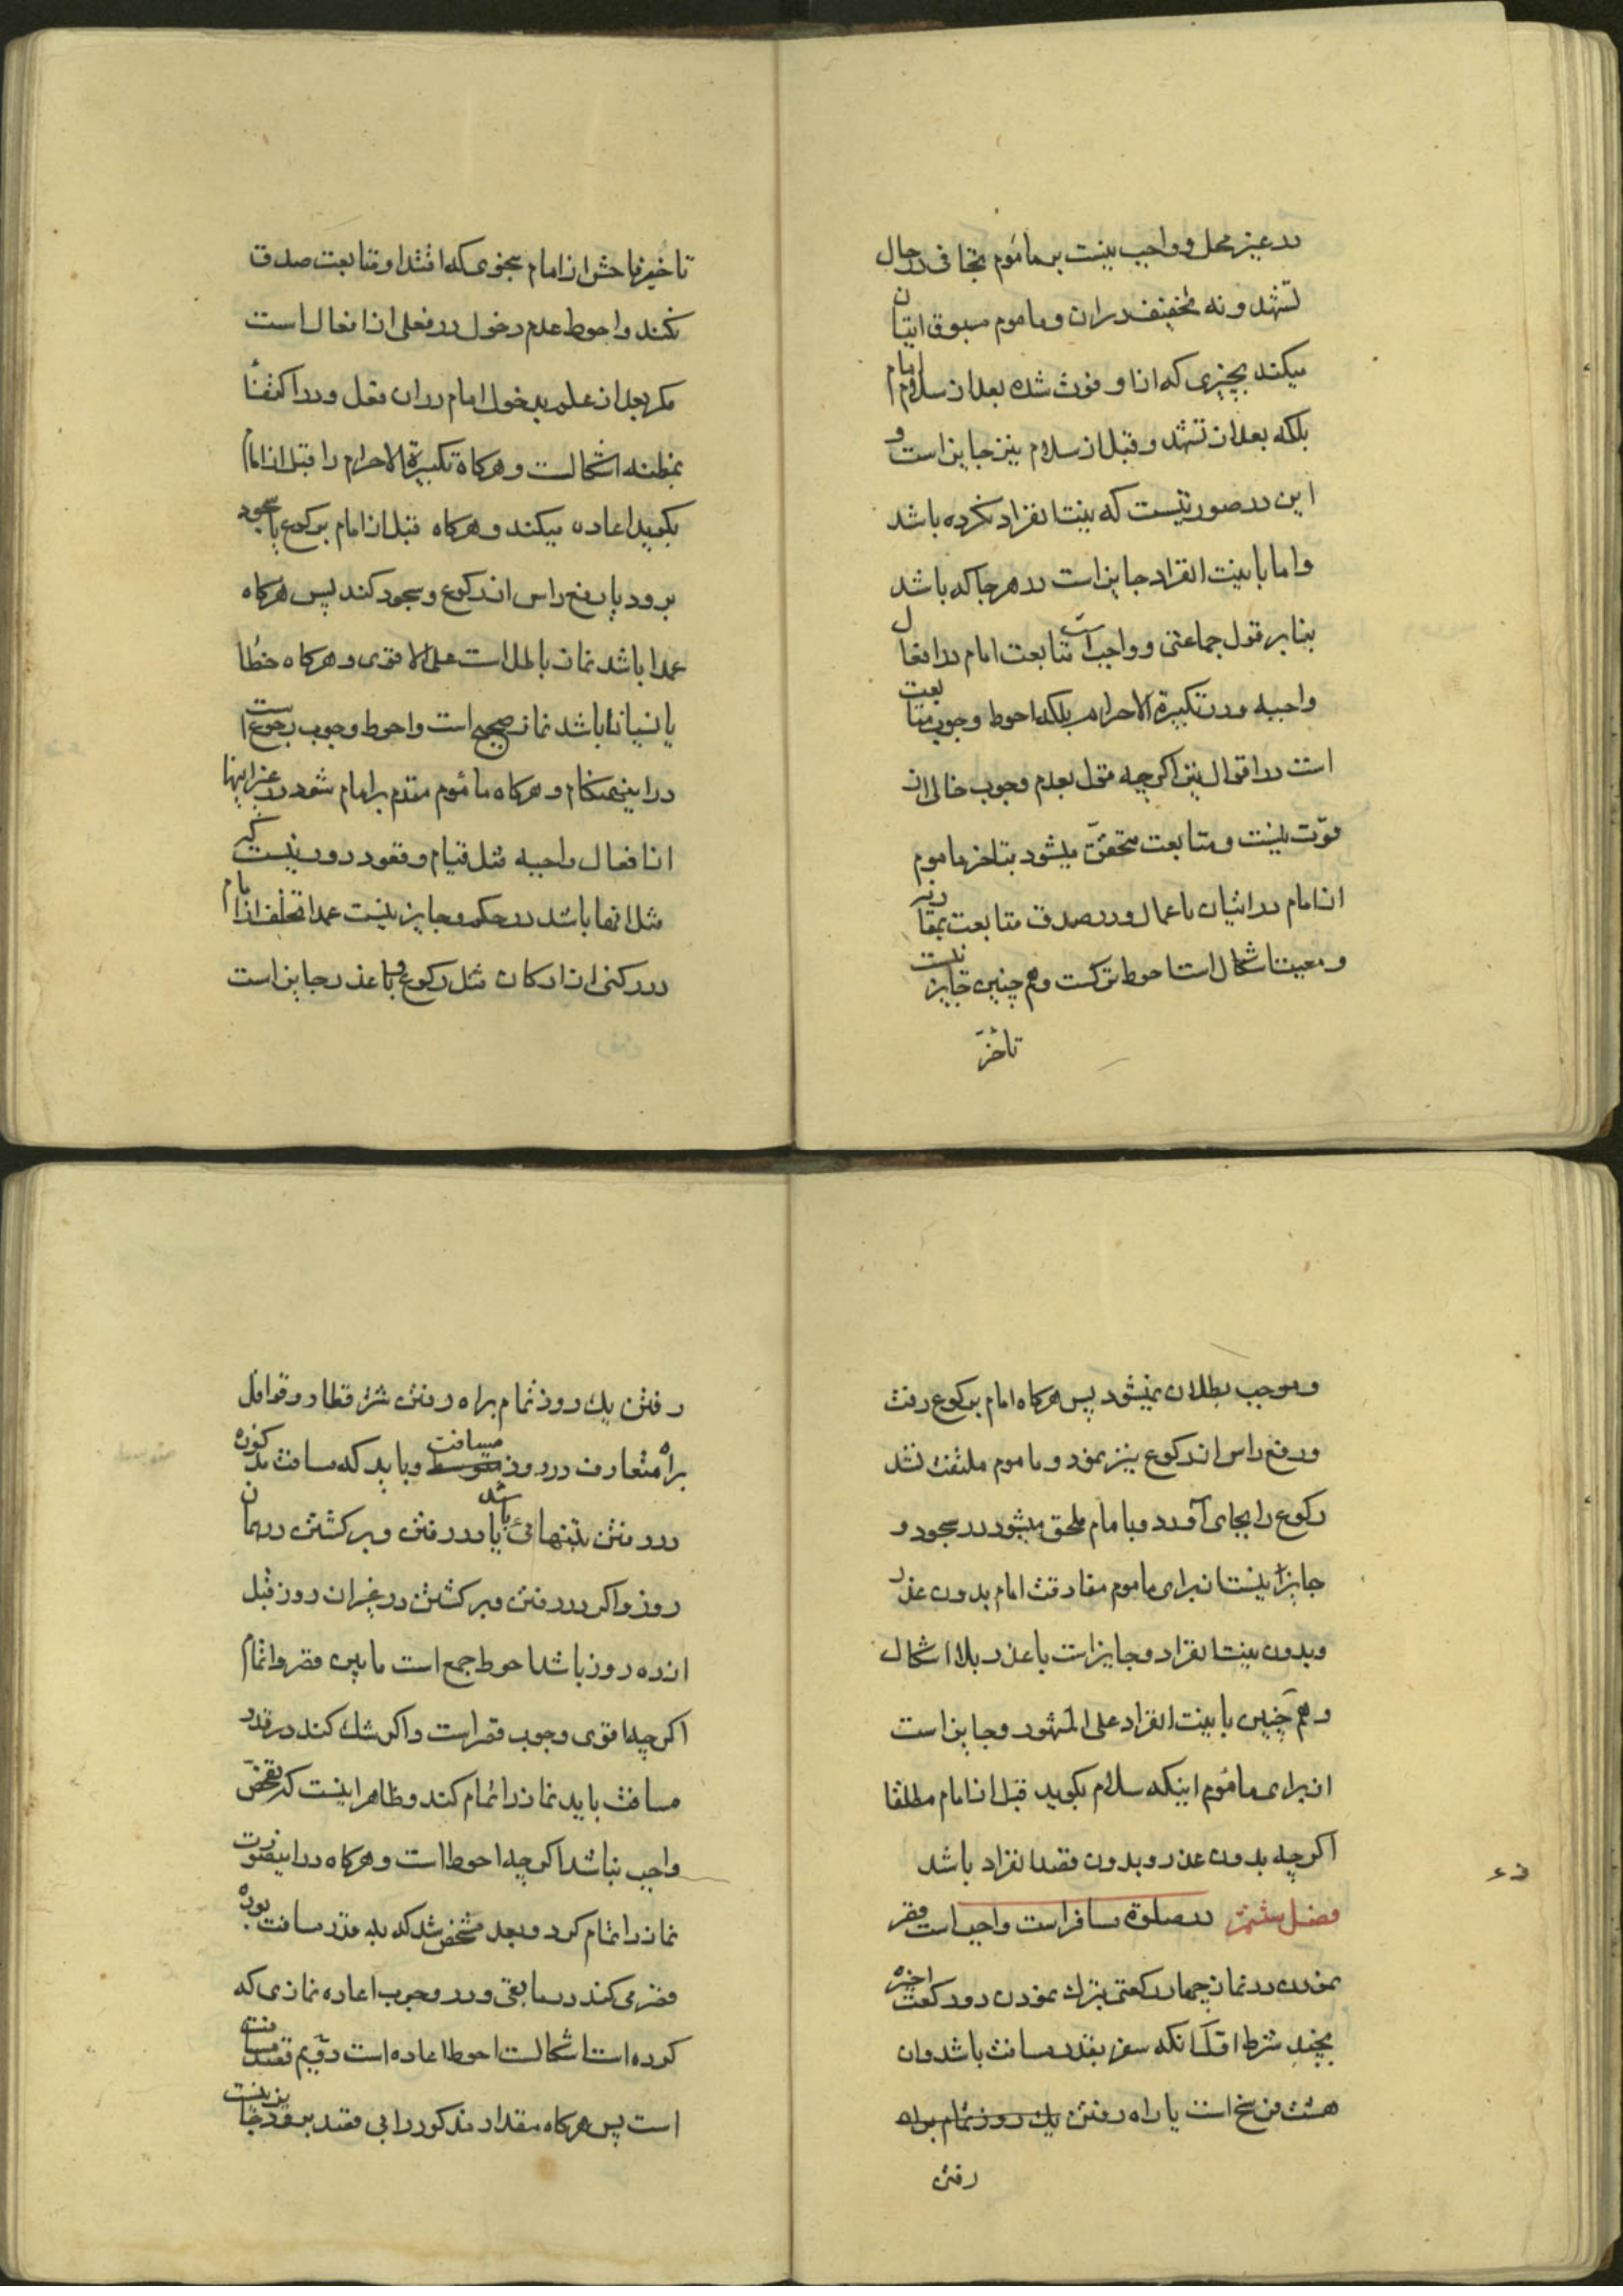 در غیر محل و واجب نیست بر ماموم تجافی در حال
تشهد و نه تخفیف در ان و ماموم مسبوق اتیان
میکند بچیزی که از او فوت شده بعد از سلام امام
بلکه بعد از تشهد و قبل از سلام نیز جایز است و
این در صورتیست که نیت انفراد نکرده باشد
و اما با نیت انفراد جایز است در هر جا که باشد
بنا بر قول جماعتی و واجب است متابعت امام در افعال
واجبه و در تکبیرة الاحرام بلکه احوط وجوب متابعت
است در اقوال نیز اگرچه قول بعدم وجوب خالی از
قوّت نیست و متابعت متحقق میشود بتاخر ماموم
از امام در اتیان باعمال و در صدق متابعت بمقارنه
و معیت اشکال است احوط ترکست و هم چنین جایز نیست
تاخر
تاخیر فاحش از امام بنحوی که اقتدا و متابعت صدق
نکند و احوط عدم دخول در فعلی از افعال است
مکر بعد از علم بدخول امام در ان فعل و در اکتفاء
بمظنه اشکالست و هرکاه تکبیرة الاحرام را قبل از امام
بکوید اعاده میکند و هرکاه قبل از امام برکوع یا سجود
برود یا رفع راس از رکوع و سجود کند پس هرکاه
عمدا باشد نماز باطل است علی الاقوی و هرکاه خطأ
یا نسیانا باشد نماز صحیح است و احوط وجوب رجوع است
در اینهنکام و هرکاه ماموم متقدم بر امام شود در غیر اینها
از افعال واجبه مثل قیام و قعود دور نیست که
مثل انها باشد در حکم و جایز نیست عمدا تخلف از امام
در رکنی از ارکان مثل رکوع و با عذر جایز است
و موجب بطلان نمیشود پس هرکاه امام برکوع رفت
و رفع راس از رکوع نیز نمود و ماموم ملتفت نشد
رکوع را بجای آورد و با امام ملحق میشود در سجود و
جایز نیست از برای ماموم مفارقت امام بدون عذر
و بدون نیت انفراد و جایز است با عذر بلا اشکال
و هم چنین با نیت انفراد علی المشهور و جایز است
از برای ماموم اینکه سلام بکوید قبل از امام مطلقا
اکرچه بدون عذر و بدون قصد انفراد باشد
فصل ششم در صلوة مسافر است واجب است قصر
نمودن در نماز چهار رکعتی بترک نمودن دو رکعت اخیره
بچند شرط اوّل آنکه سفر بقدر مسافت باشد و ان
هشت فرسخ است یا راه رفتن یک روز تمام براه
رفتن
رفتن یک روز تمام براه رفتن شتر قطار و قوافل
براه متعارف در روز متوسط مسافت و باید که مسافت مذکوره
در رفتن بتنهائی باشد یا در رفتن و برکشتن در همان
روز و اکر در رفتن و برکشتن در غیر ان روز قبل
از ده روز باشد احوط جمع است مابین قصر و اتمام
اکرچه اقوی وجوب قصر است و اکر شک کند در قدر
مسافت باید نماز را تمام کند و ظاهر اینست که تفحص
واجب نباشد اکرچه احوط است و هرکاه در اینصورت
نماز را تمام کرد و بعد مشخص شد که بقدر مسافت بوده
قصر می کند در مابقی و در وجوب اعاده نمازی که
کرده است اشکالست احوط اعاده است دویّم قصد مسافت
است پس هرکاه مقدار مذکور را بی قصد برود جایز نیست